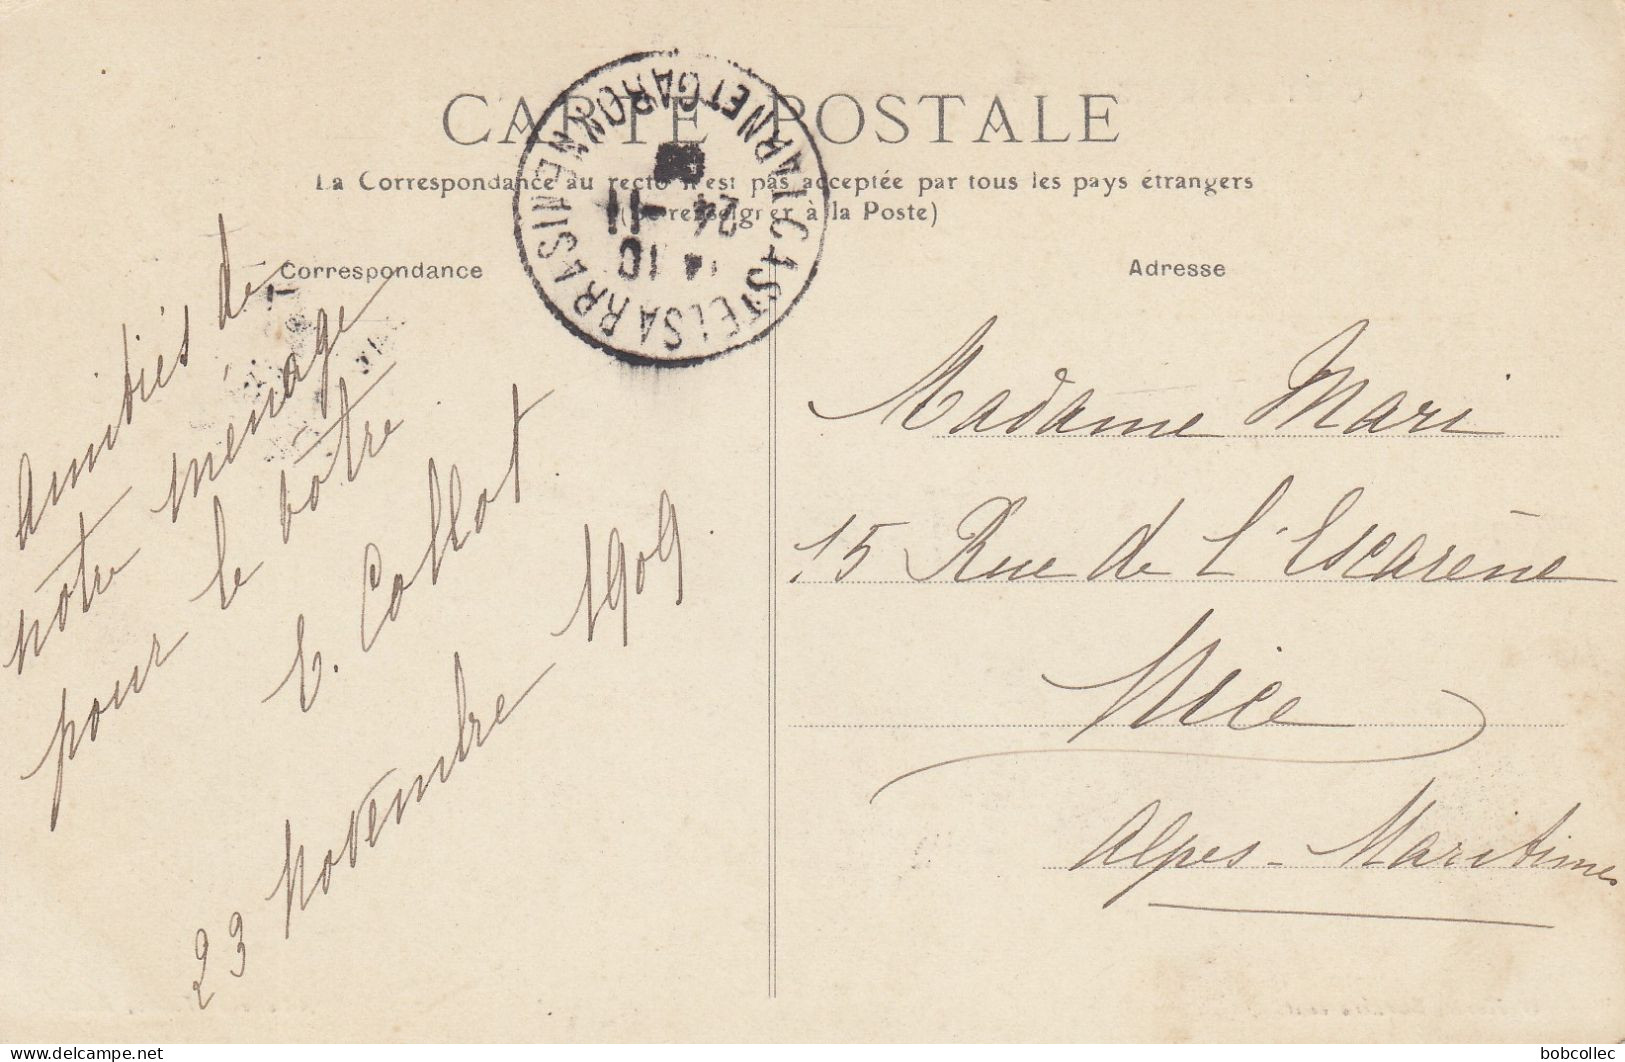 CARTE POSTALE
La Correspondance au recto n'est pas acceptée par tous les pays étrangers
(Se renseigner à la Poste)
CASTELSARRASIN
TARN ET GARONNE
14 10
24 -11
Correspondance
Amitiés de
notre ménage
pour le vôtre
E. Collot
23 Novembre 1909.
Adresse
Madame Mari
15 Rue de l'Escarène
Nice
Alpes-Maritimes
delcampe.net
bobcollec